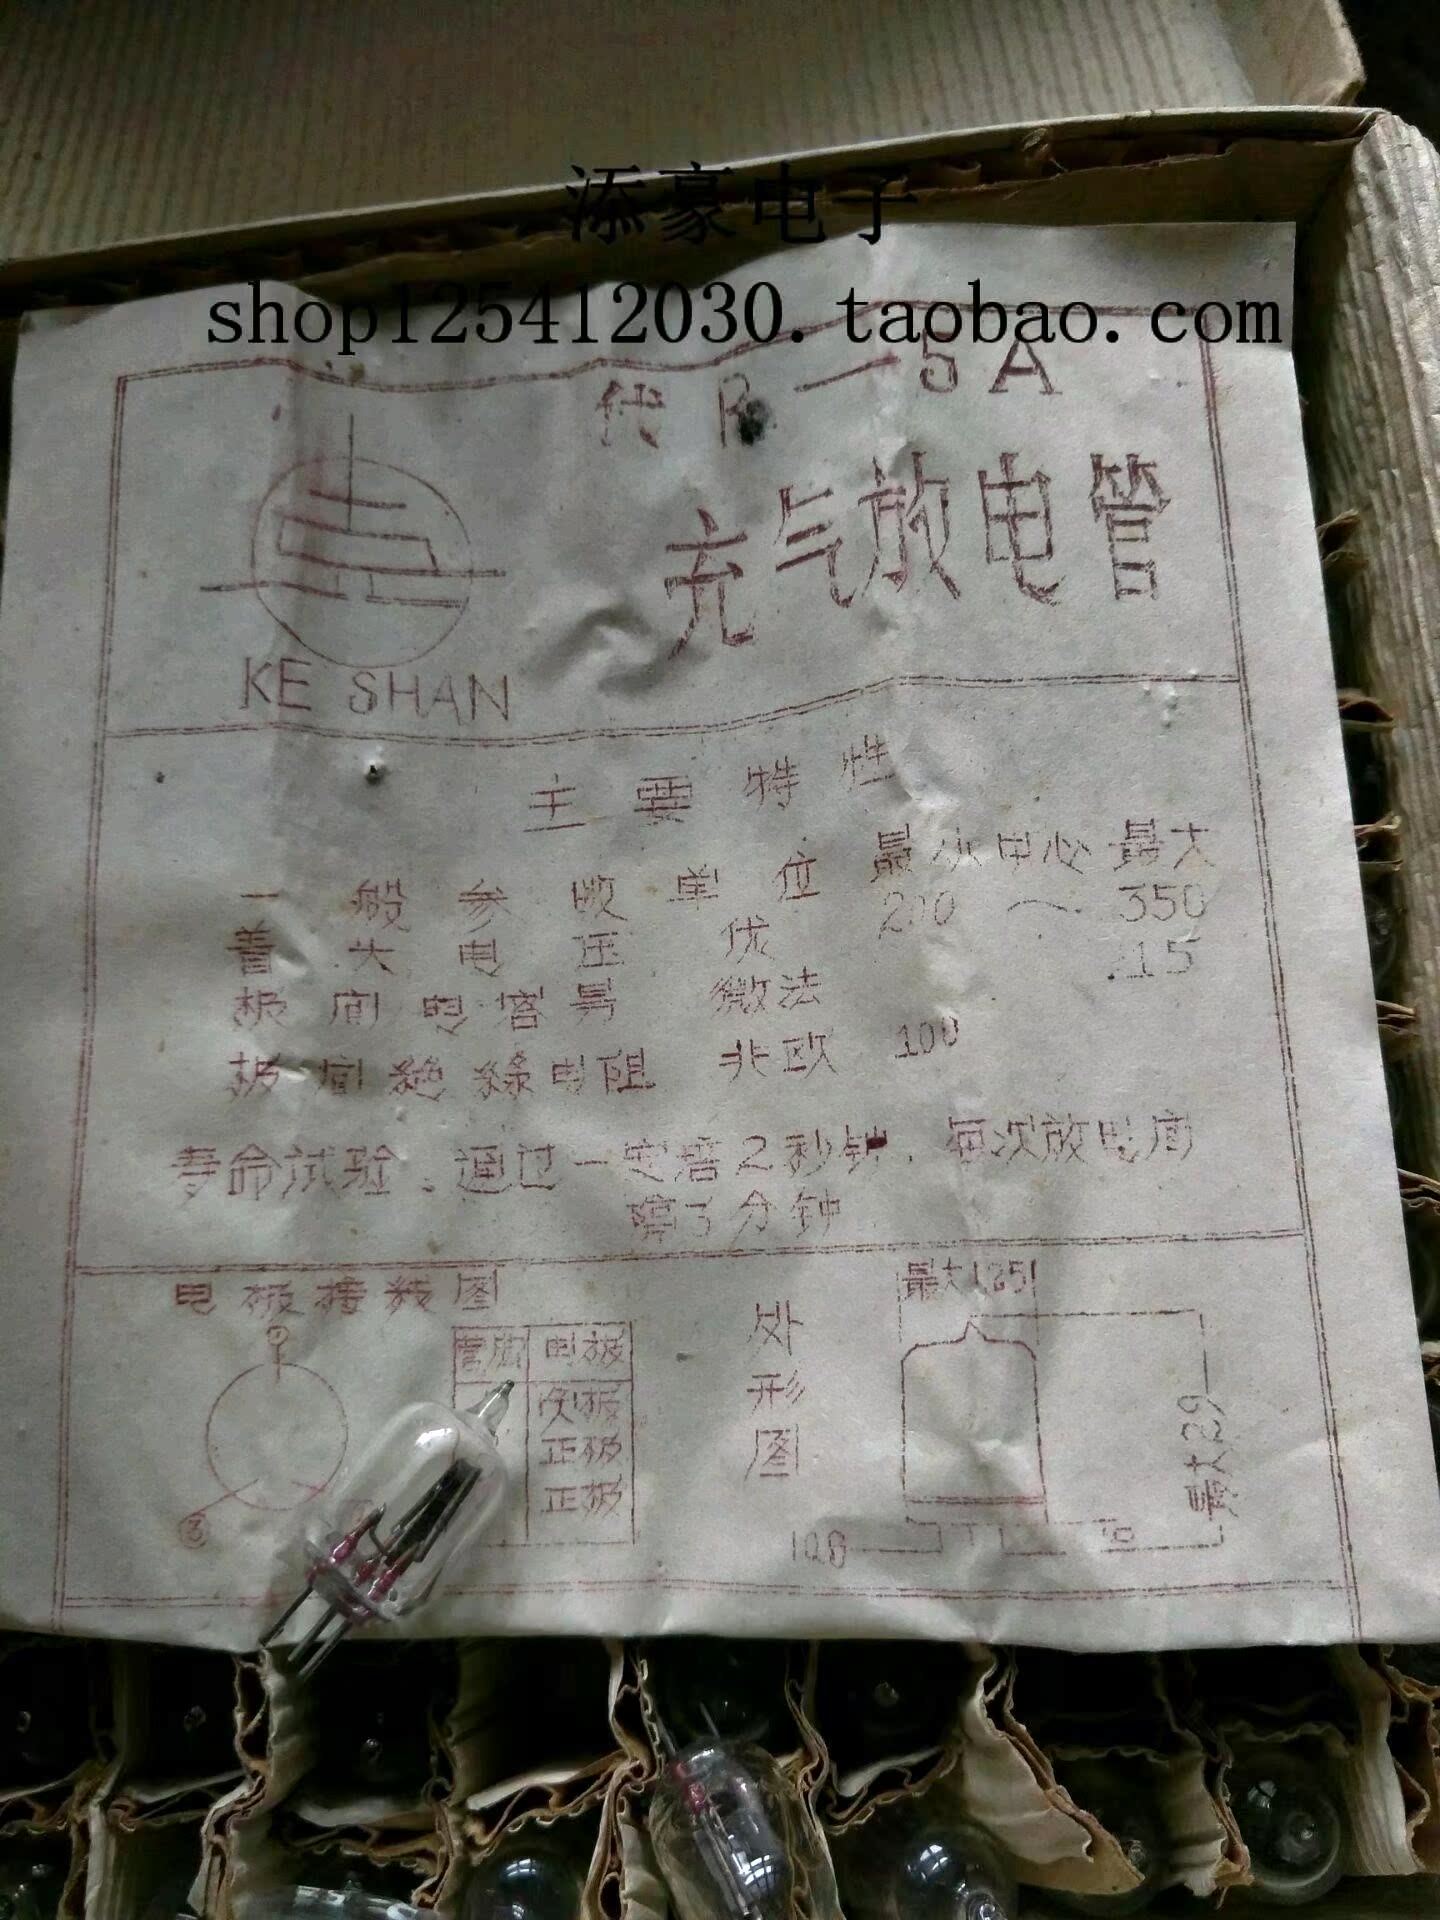 添豪电子
shop125412030.taobao.com
代R—5A
充气放电管
KE SHAN
主要特性
一般参数 单位 最小 中心 最大
着火电压 伏 200 ～ 350
极间电容 微法 .15
极间绝缘电阻 兆欧 100
寿命试验．通过一安培2秒钟．每次放电间
隔3分钟
电极接线图
管脚 电极
极
正极
正极
③
外形图
最大
最大29